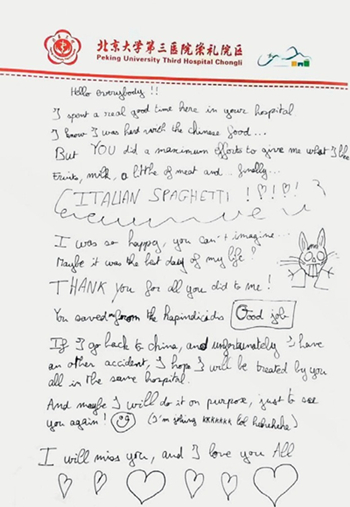 北京大学第三医院崇礼院区
Peking University Third Hospital Chongli
Hello everybody !!
I spent a real good time here in your hospital
I know I was hard with the chinese food...
But YOU did a maximum efforts to give me what I like
Fruits, milk, a little of meat and... finally...
ITALIAN SPAGHETTI ! ! !
I was so happy, you can't imagine...
Maybe it was the best day of my life !
THANK you for all you did to me !
You saved from the Good job
If I go back to china, and unfortunately I have
an other accident, I hope I will be treated by you
all in the same hospital.
And maybe I will do it on purpose, just to see
you again ! (I'm joking lol hehehehe)
I will miss you, and I love you All